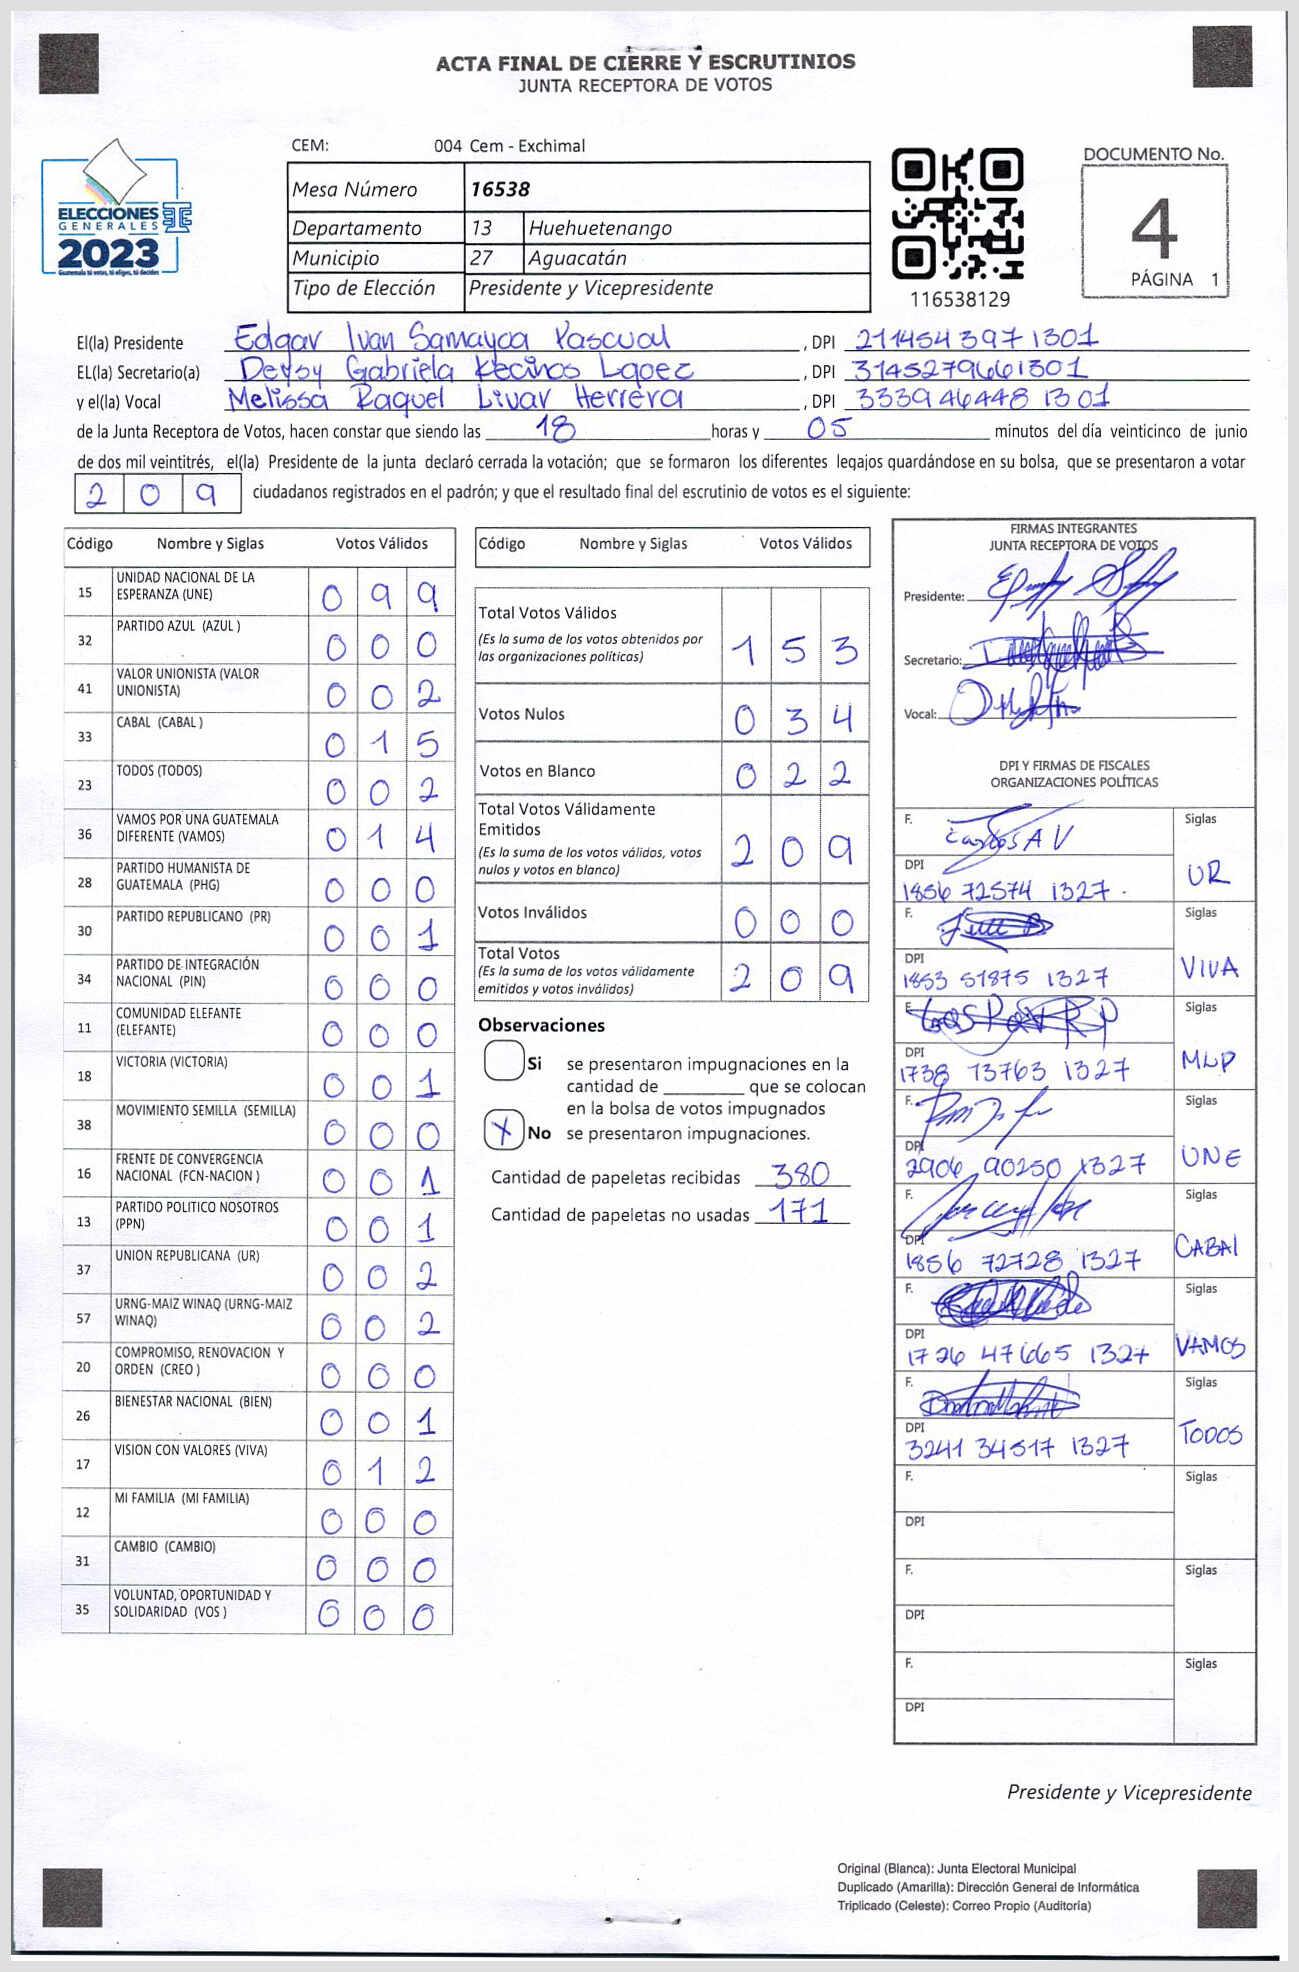 ACTA FINAL DE CIERRE Y ESCRUTINIOS
JUNTA RECEPTORA DE VOTOS
ELECCIONES
GENERALES
2023
Guatemala tú votas, tú eliges, tú decides
CEM: 004 Cem - Exchimal
Mesa Número 16538
Departamento 13 Huehuetenango
Municipio 27 Aguacatán
Tipo de Elección Presidente y Vicepresidente
116538129
DOCUMENTO No.
4
PÁGINA 1
El(la) Presidente Edgar Ivan Samayoa Pascual, DPI 2114543971301
EL(la) Secretario(a) Deysy Gabriela Recinos, DPI 3145279661301
y el(la) Vocal Melissa Raquel Herrera, DPI 3339464481301
de la Junta Receptora de Votos, hacen constar que siendo las 18 horas y 05 minutos del día veinticinco de junio
de dos mil veintitrés, el(la) Presidente de la junta declaró cerrada la votación; que se formaron los diferentes legajos guardándose en su bolsa, que se presentaron a votar
209 ciudadanos registrados en el padrón; y que el resultado final del escrutinio de votos es el siguiente:
Código Nombre y Siglas Votos Válidos
15 UNIDAD NACIONAL DE LA ESPERANZA (UNE) 099
32 PARTIDO AZUL (AZUL ) 000
41 VALOR UNIONISTA (VALOR UNIONISTA) 002
33 CABAL (CABAL ) 015
23 TODOS (TODOS) 002
36 VAMOS POR UNA GUATEMALA DIFERENTE (VAMOS) 014
28 PARTIDO HUMANISTA DE GUATEMALA (PHG) 000
30 PARTIDO REPUBLICANO (PR) 001
34 PARTIDO DE INTEGRACIÓN NACIONAL (PIN) 000
11 COMUNIDAD ELEFANTE (ELEFANTE) 000
18 VICTORIA (VICTORIA) 001
38 MOVIMIENTO SEMILLA (SEMILLA) 000
16 FRENTE DE CONVERGENCIA NACIONAL (FCN-NACION ) 001
13 PARTIDO POLITICO NOSOTROS (PPN) 001
37 UNION REPUBLICANA (UR) 002
57 URNG-MAIZ WINAQ (URNG-MAIZ WINAQ) 002
20 COMPROMISO, RENOVACION Y ORDEN (CREO ) 000
26 BIENESTAR NACIONAL (BIEN) 001
17 VISION CON VALORES (VIVA) 012
12 MI FAMILIA (MI FAMILIA) 000
31 CAMBIO (CAMBIO) 000
35 VOLUNTAD, OPORTUNIDAD Y SOLIDARIDAD (VOS ) 000
Código Nombre y Siglas Votos Válidos
Total Votos Válidos 153
(Es la suma de los votos obtenidos por las organizaciones políticas)
Votos Nulos 034
Votos en Blanco 022
Total Votos Válidamente Emitidos 209
(Es la suma de los votos válidos, votos nulos y votos en blanco)
Votos Inválidos 000
Total Votos 209
(Es la suma de los votos válidamente emitidos y votos inválidos)
Observaciones
Si se presentaron impugnaciones en la
cantidad de ________ que se colocan
en la bolsa de votos impugnados
X No se presentaron impugnaciones.
Cantidad de papeletas recibidas 380
Cantidad de papeletas no usadas 171
FIRMAS INTEGRANTES
JUNTA RECEPTORA DE VOTOS
Presidente:
Secretario:
Vocal:
DPI Y FIRMAS DE FISCALES
ORGANIZACIONES POLÍTICAS
F. Carlos A V Siglas
DPI 1856 72574 1327 UR
F. Siglas
DPI 1853 51875 1327 VIVA
F. Siglas
DPI 1738 13763 1327 MLP
F. Siglas
DPI 2906 90250 1327 UNE
F. Siglas
DPI 1856 72728 1327 CABAl
F. Siglas
DPI 1726 47665 1327 VAMOS
F. Siglas
DPI 3241 34517 1327 TODOS
F. Siglas
DPI
F. Siglas
DPI
F. Siglas
DPI
Presidente y Vicepresidente
Original (Blanca): Junta Electoral Municipal
Duplicado (Amarilla): Dirección General de Informática
Triplicado (Celeste): Correo Propio (Auditoría)